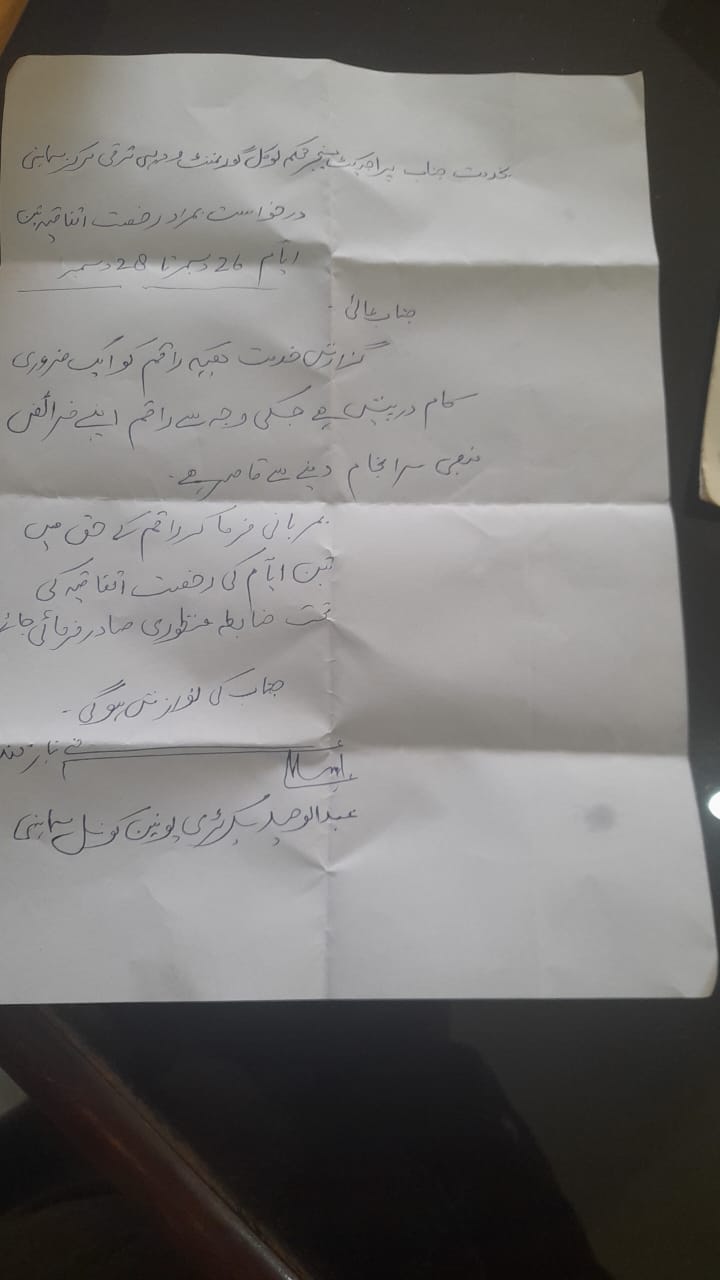 بخدمت جناب پراجیکٹ مینجر محکمہ لوکل گورنمنٹ و دیہی ترقی مرکز سماہنی
درخواست بمراد رخصت اتفاقیہ تین
ایام 26 دسمبر تا 28 دسمبر
جناب عالی -
گزارش خدمت ہیکہ راقم کو ایک ضروری
کام درپیش ہے جسکی وجہ سے راقم اپنے فرائض
منصبی سرانجام دینے سے قاصر ہے -
مہربانی فرما کر راقم کے حق میں
تین ایام کی رخصت اتفاقیہ کی
تحت ضابطہ منظوری صادر فرمائی جائے
جناب کی نوازش ہوگی -
عبدالوحید سیکرٹری یونین کونسل سماہنی